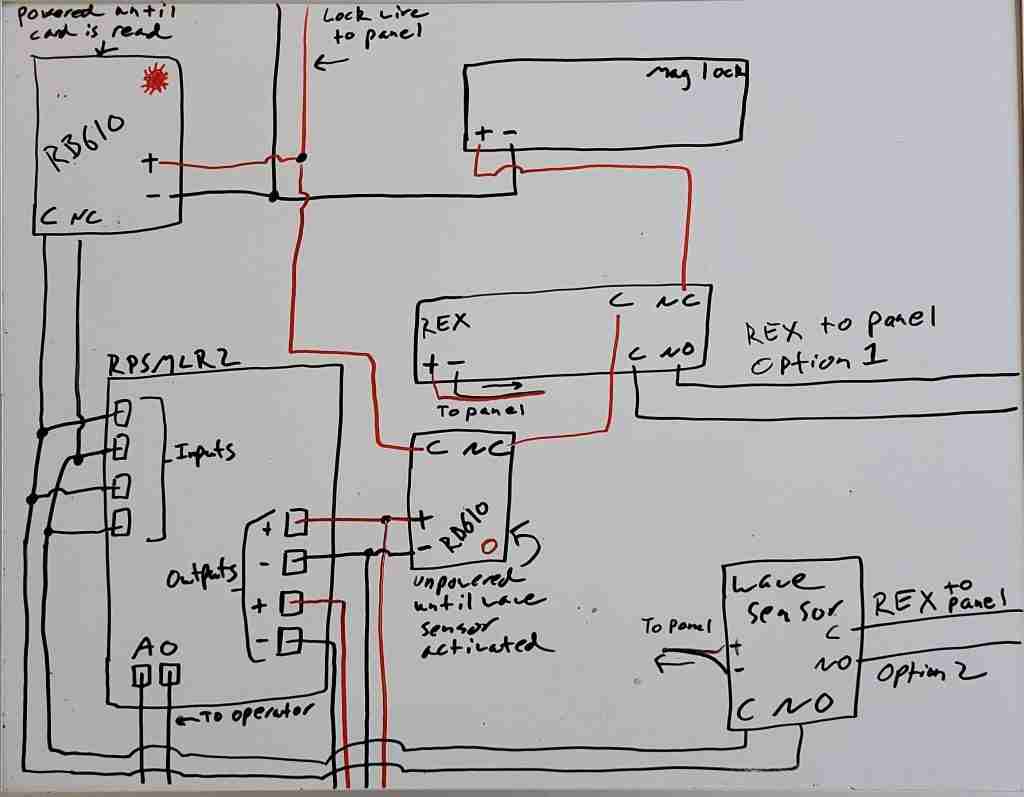 powered until
card is read
Lock wire
to panel
Mag lock
+ -
RB610
+
-
C NC
REX
C NC
C NO
+ -
To panel
REX to panel
Option 1
RPSMLR2
Inputs
C NC
+
-
RB610
unpowered
until wave
sensor
activated
Outputs
+
-
+
-
AO
To operator
Wave
sensor
C
NO
C NO
+
-
To panel
REX to
panel
Option 2